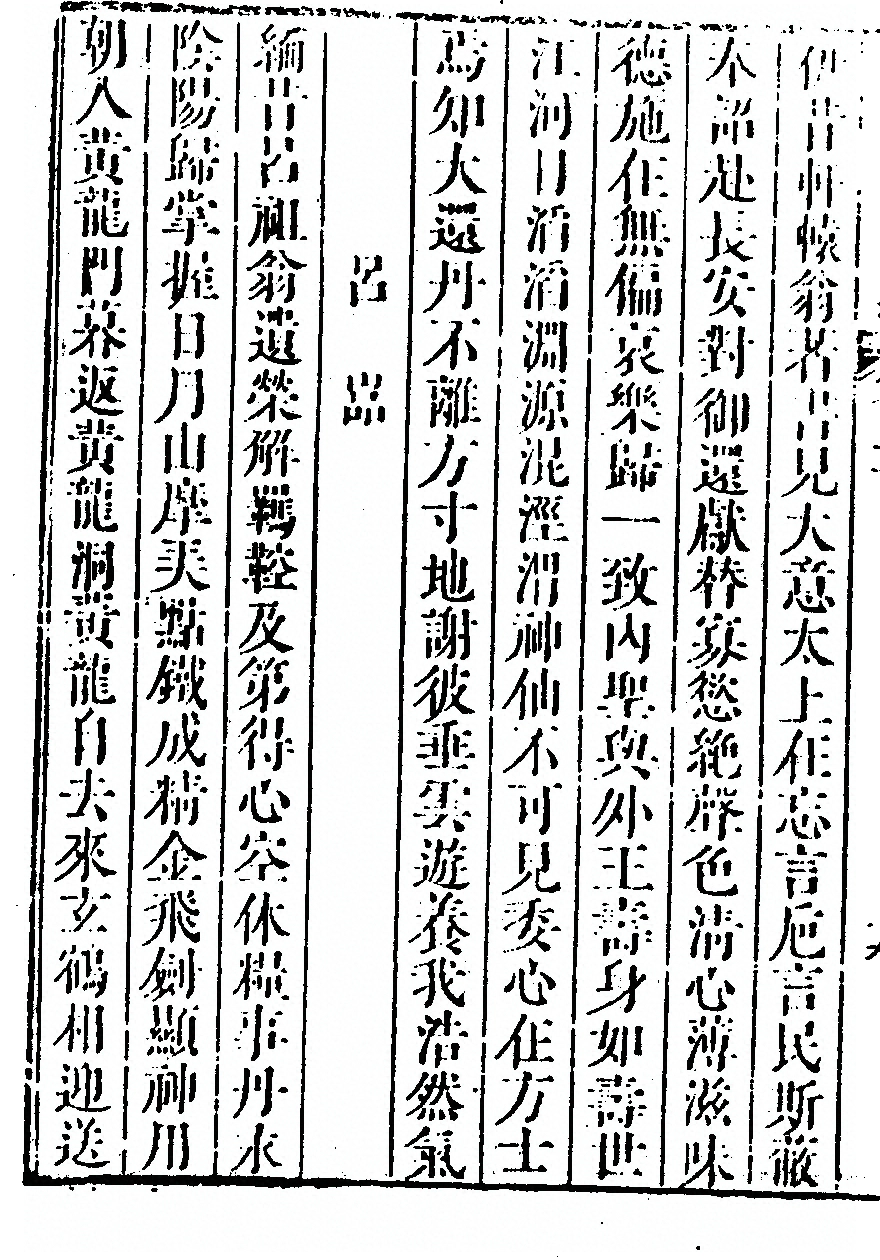 伊昔軒轅翁者言見大意太上在忘言卮言民斯蔽
奉詔赴長安對御還獻替寡慾絶聲色清心薄滋味
德施在無偏哀樂歸一致內聖與外王壽身如壽世
江河日滔滔淵源混涇渭神仙不可見委心任方士
焉知大還丹不離方寸地謝彼垂雲遊養我浩然氣
呂嵒
緬昔呂祖翁遺榮解羈鞚及第得心空休糧事丹汞
陰陽歸掌握日月由摩弄點鐵成精金飛劍顯神用
朝入黃龍門暮返黃龍洞黃龍自去來玄鶴相迎送